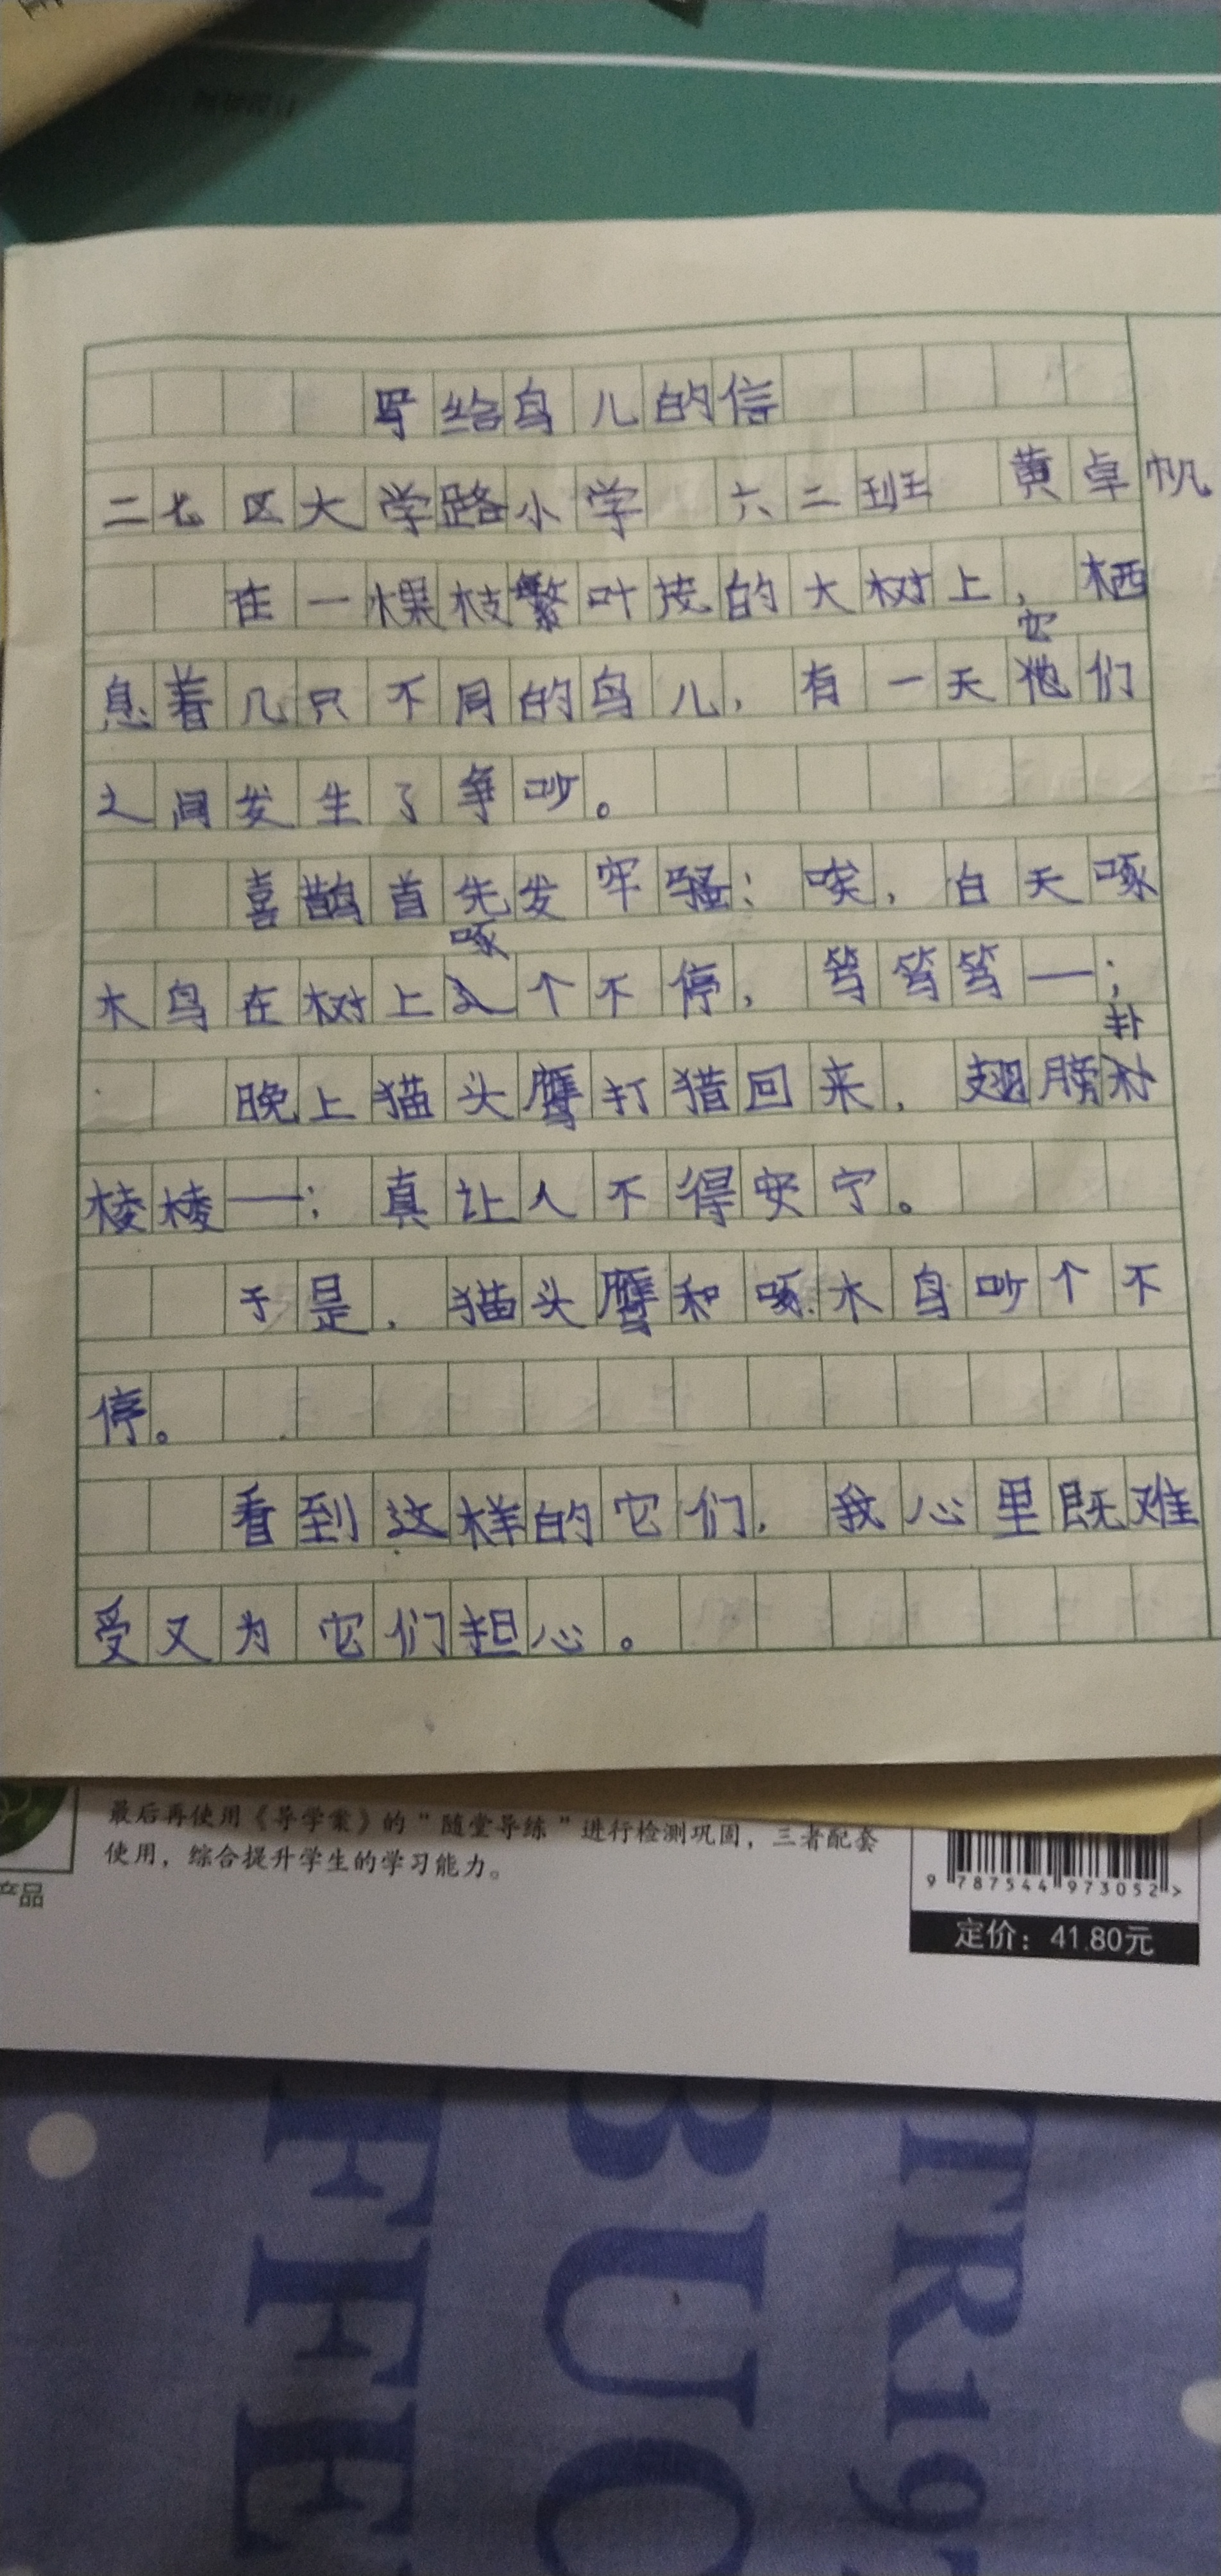 写给鸟儿的信
二七区大学路小学 六二班 黄卓帆
在一棵枝繁叶茂的大树上，栖
息着几只不同的鸟儿，有一天它们
之间发生了争吵。
喜鹊首先发牢骚：唉，白天啄
木鸟在树上啄个不停，笃笃笃—；
晚上猫头鹰打猎回来，翅膀卦
棱棱—：真让人不得安宁。
于是，猫头鹰和啄木鸟吵个不
停。
看到这样的它们，我心里既难
受又为它们担心。
最后再使用《导学案》的“随堂导练”进行检测巩固，三者配套
使用，综合提升学生的学习能力。
产品
9 787544 973052 >
定价：41.80元
FFE
BUC
TR197